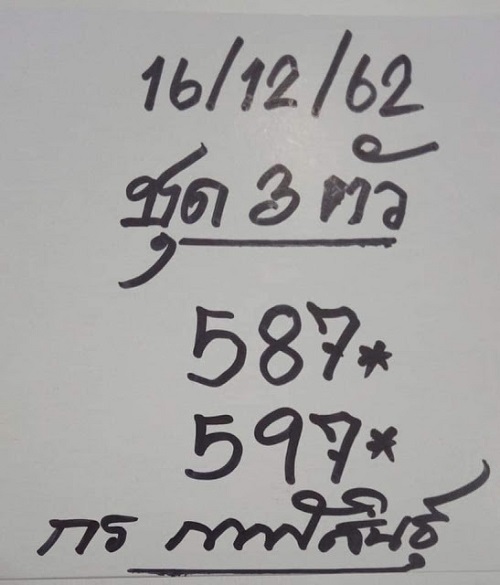 16/12/62
ชุด 3 ตัว
587*
597*
กร กาฬสินธุ์